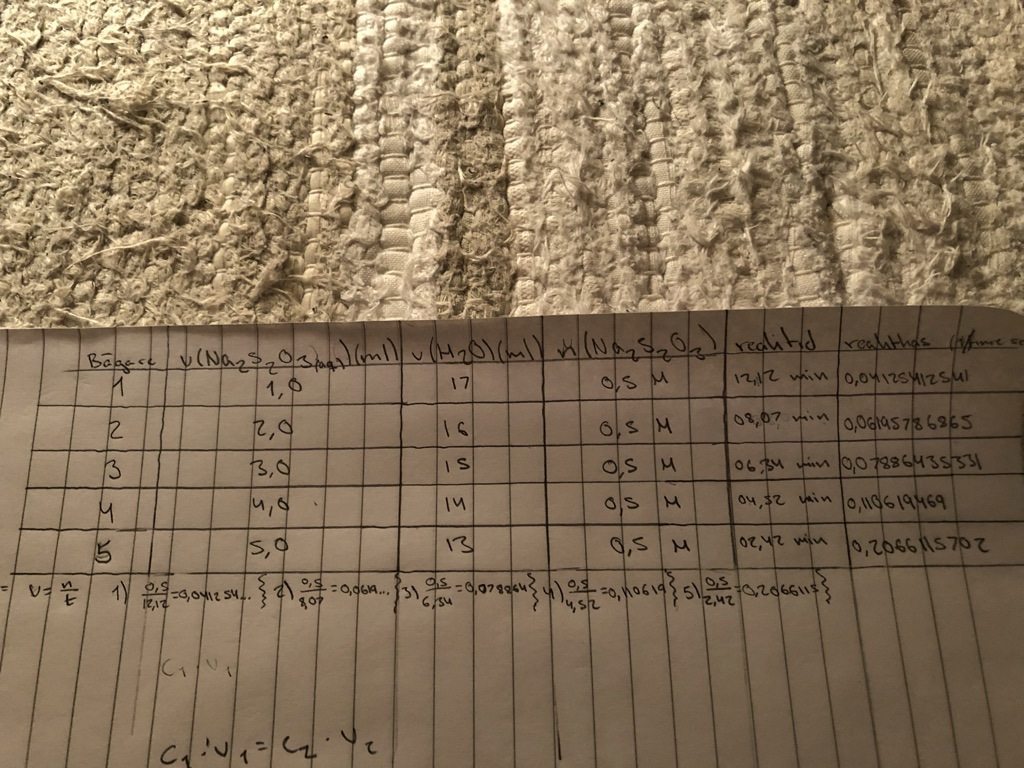 Bägare V(Na₂S₂O₃(aq))(ml) V(H₂O)(ml) (Na₂S₂O₃) reaktid
1 1,0 17 0,5 M 12,12 min 0,04125412541
2 2,0 16 0,5 M 08,07 min 0,06195786865
3 3,0 15 0,5 M 06,34 min 0,07886435331
4 4,0 14 0,5 M 04,52 min 0,110619469
5 5,0 13 0,5 M 02,42 min 0,2066115702
= v=n/t 1) 0,5/12,12=0,041254... } 2) 0,5/8,07=0,0619... } 3) 0,5/6,34=0,078864 } 4) 0,5/4,52=0,110619 } 5) 0,5/2,42=0,2066115 }
C₁ · V₁
C₁ · V₁ = C₂ · V₂